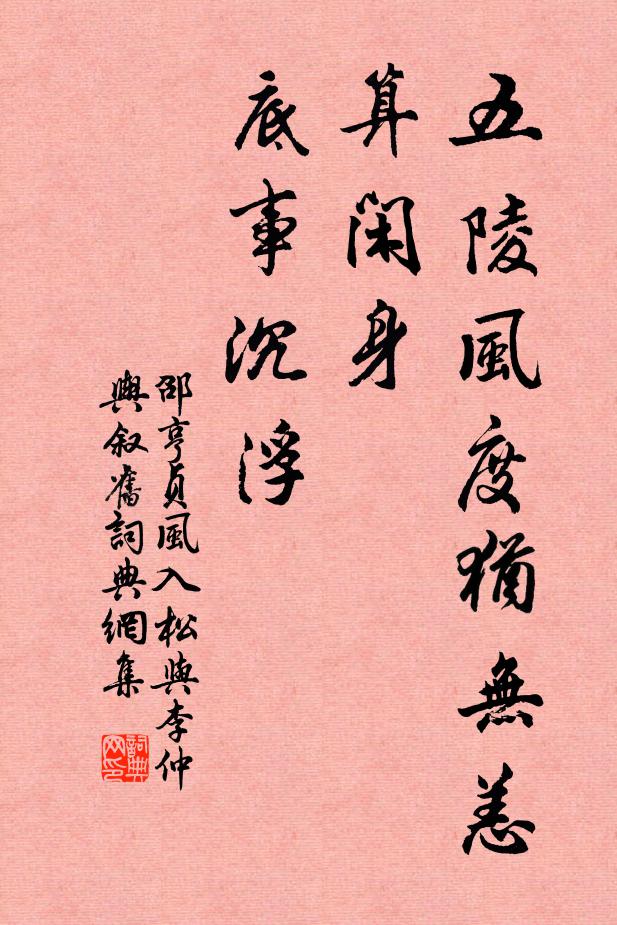 五陵風度猶無恙
算閑身
底事沉浮
邵亨貞風入松與李仲
與叙舊詞典網集
詞典
网印